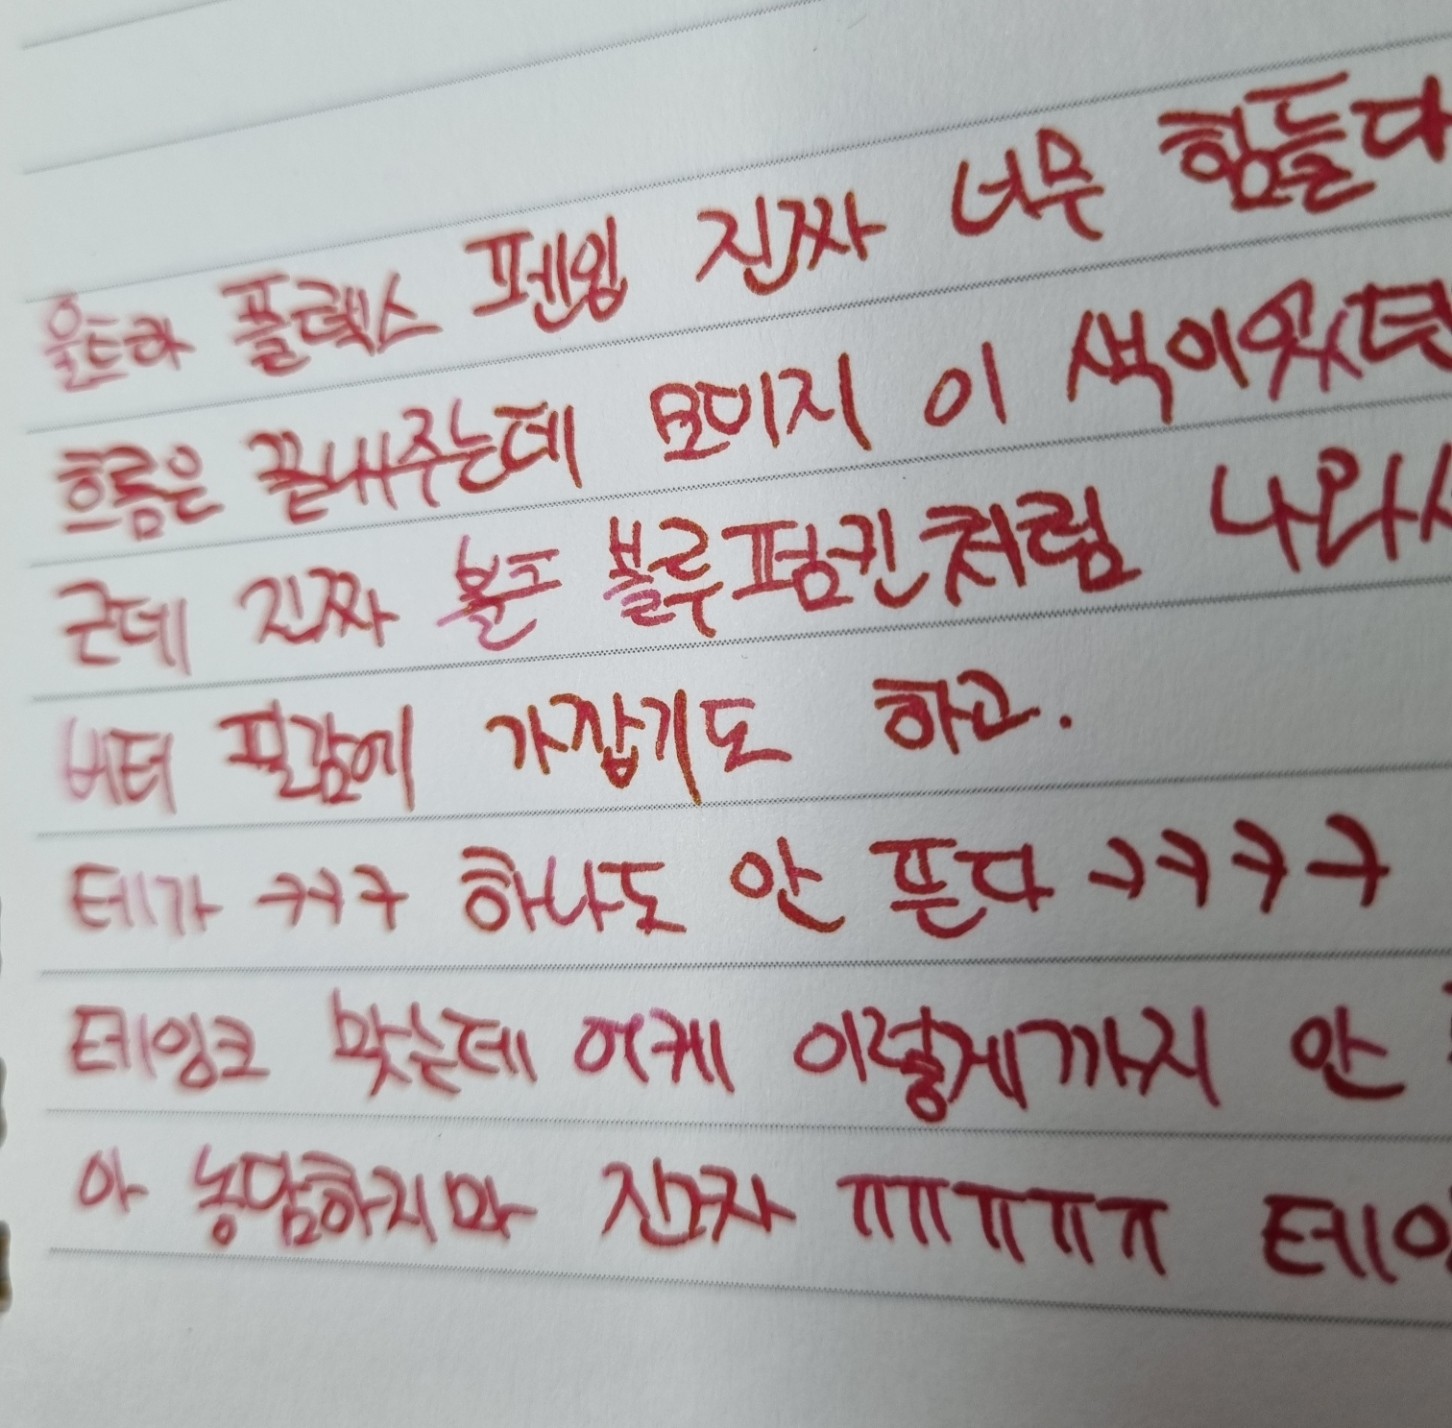 울트라 플렉스 펜임 진짜 너무 힘들다
흐름은 끝내주는데 모이지 이 색이었던
근데 진짜 블루펌킨처럼 나와서
버터 필감에 가깝기도 하고.
테가 ㅋㅋㅋ 하나도 안 뜬다 ㅋㅋㅋㅋ
테잉크 맞는데 어케 이렇게까지 안
아 농담하지마 진짜 ㅠㅠㅠㅠㅠ 테잉